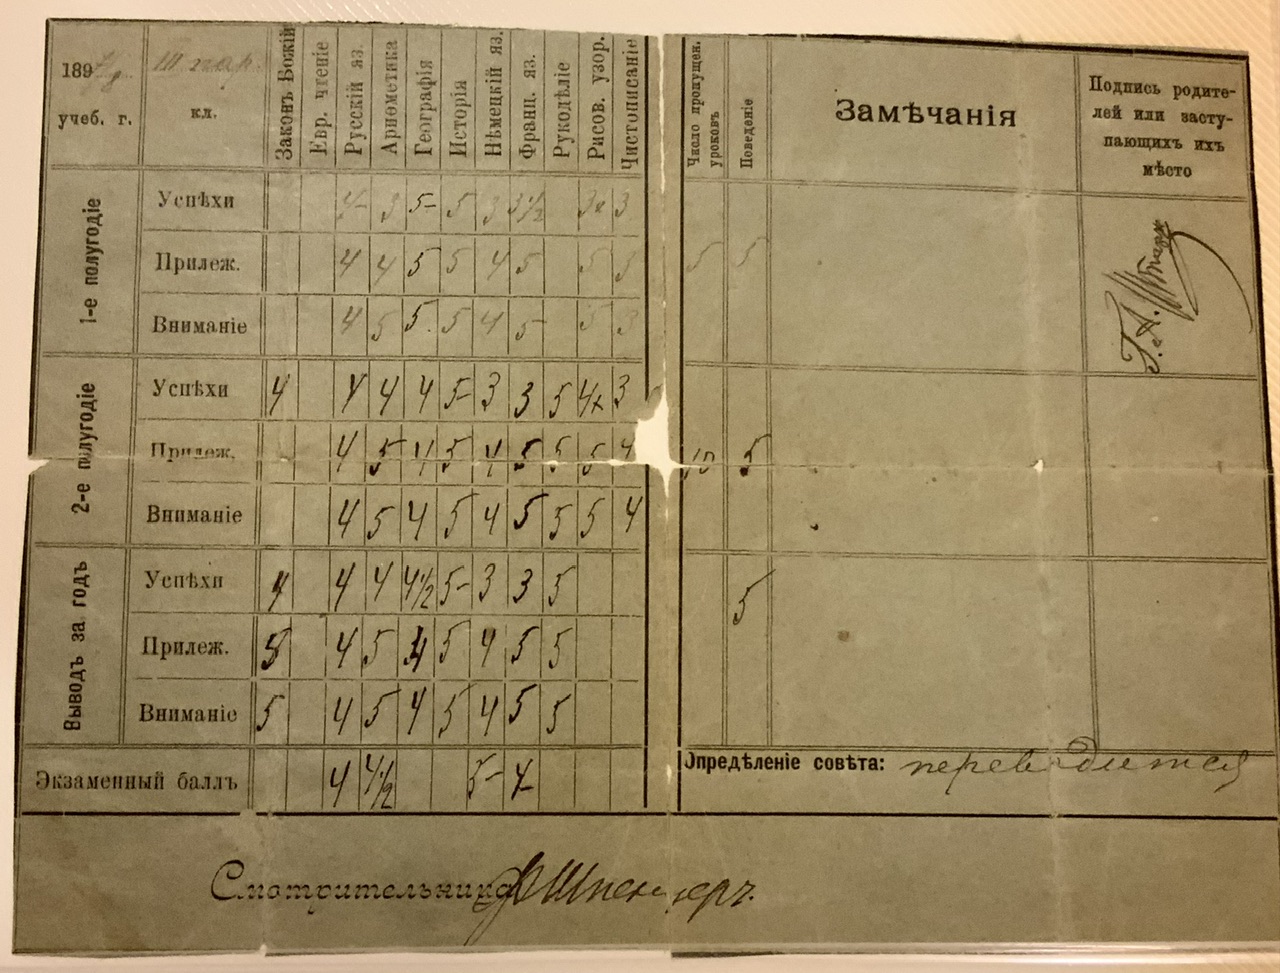 1897/8
учеб. г.
III пар.
кл.
Законъ Божій
Евр. чтеніе
Русскій яз.
Ариѳметика
Географія
Исторія
Нѣмецкій яз.
Франц. яз.
Рукодѣліе
Рисов. узор.
Чистописаніе
Число пропущен. уроковъ
Поведеніе
Замѣчанія
Подпись родите-
лей или засту-
пающихъ ихъ
мѣсто
1-е полугодіе
Успѣхи 4- 3 5- 5 3 3½ 3х 3
Прилеж. 4 4 5 5 4 5 5 3 5 5
Вниманіе 4 5 5. 5 4 5- 5 3
2-е полугодіе
Успѣхи 4 4 4 4 5- 3 3 5 4х 3
Прилеж. 4 5 4 5 4 5 5 5 4 10 5
Вниманіе 4 5 4 5 4 5 5 5 4
Выводъ за годъ
Успѣхи 4 4 4 4½ 5- 3 3 5 5
Прилеж. 5 4 5 4 5 4 5 5
Вниманіе 5 4 5 4 5 4 5 5
Экзаменный баллъ 4 4½ 5- 4
Опредѣленіе совѣта: переводится
Смотрительница Шпенцеръ.